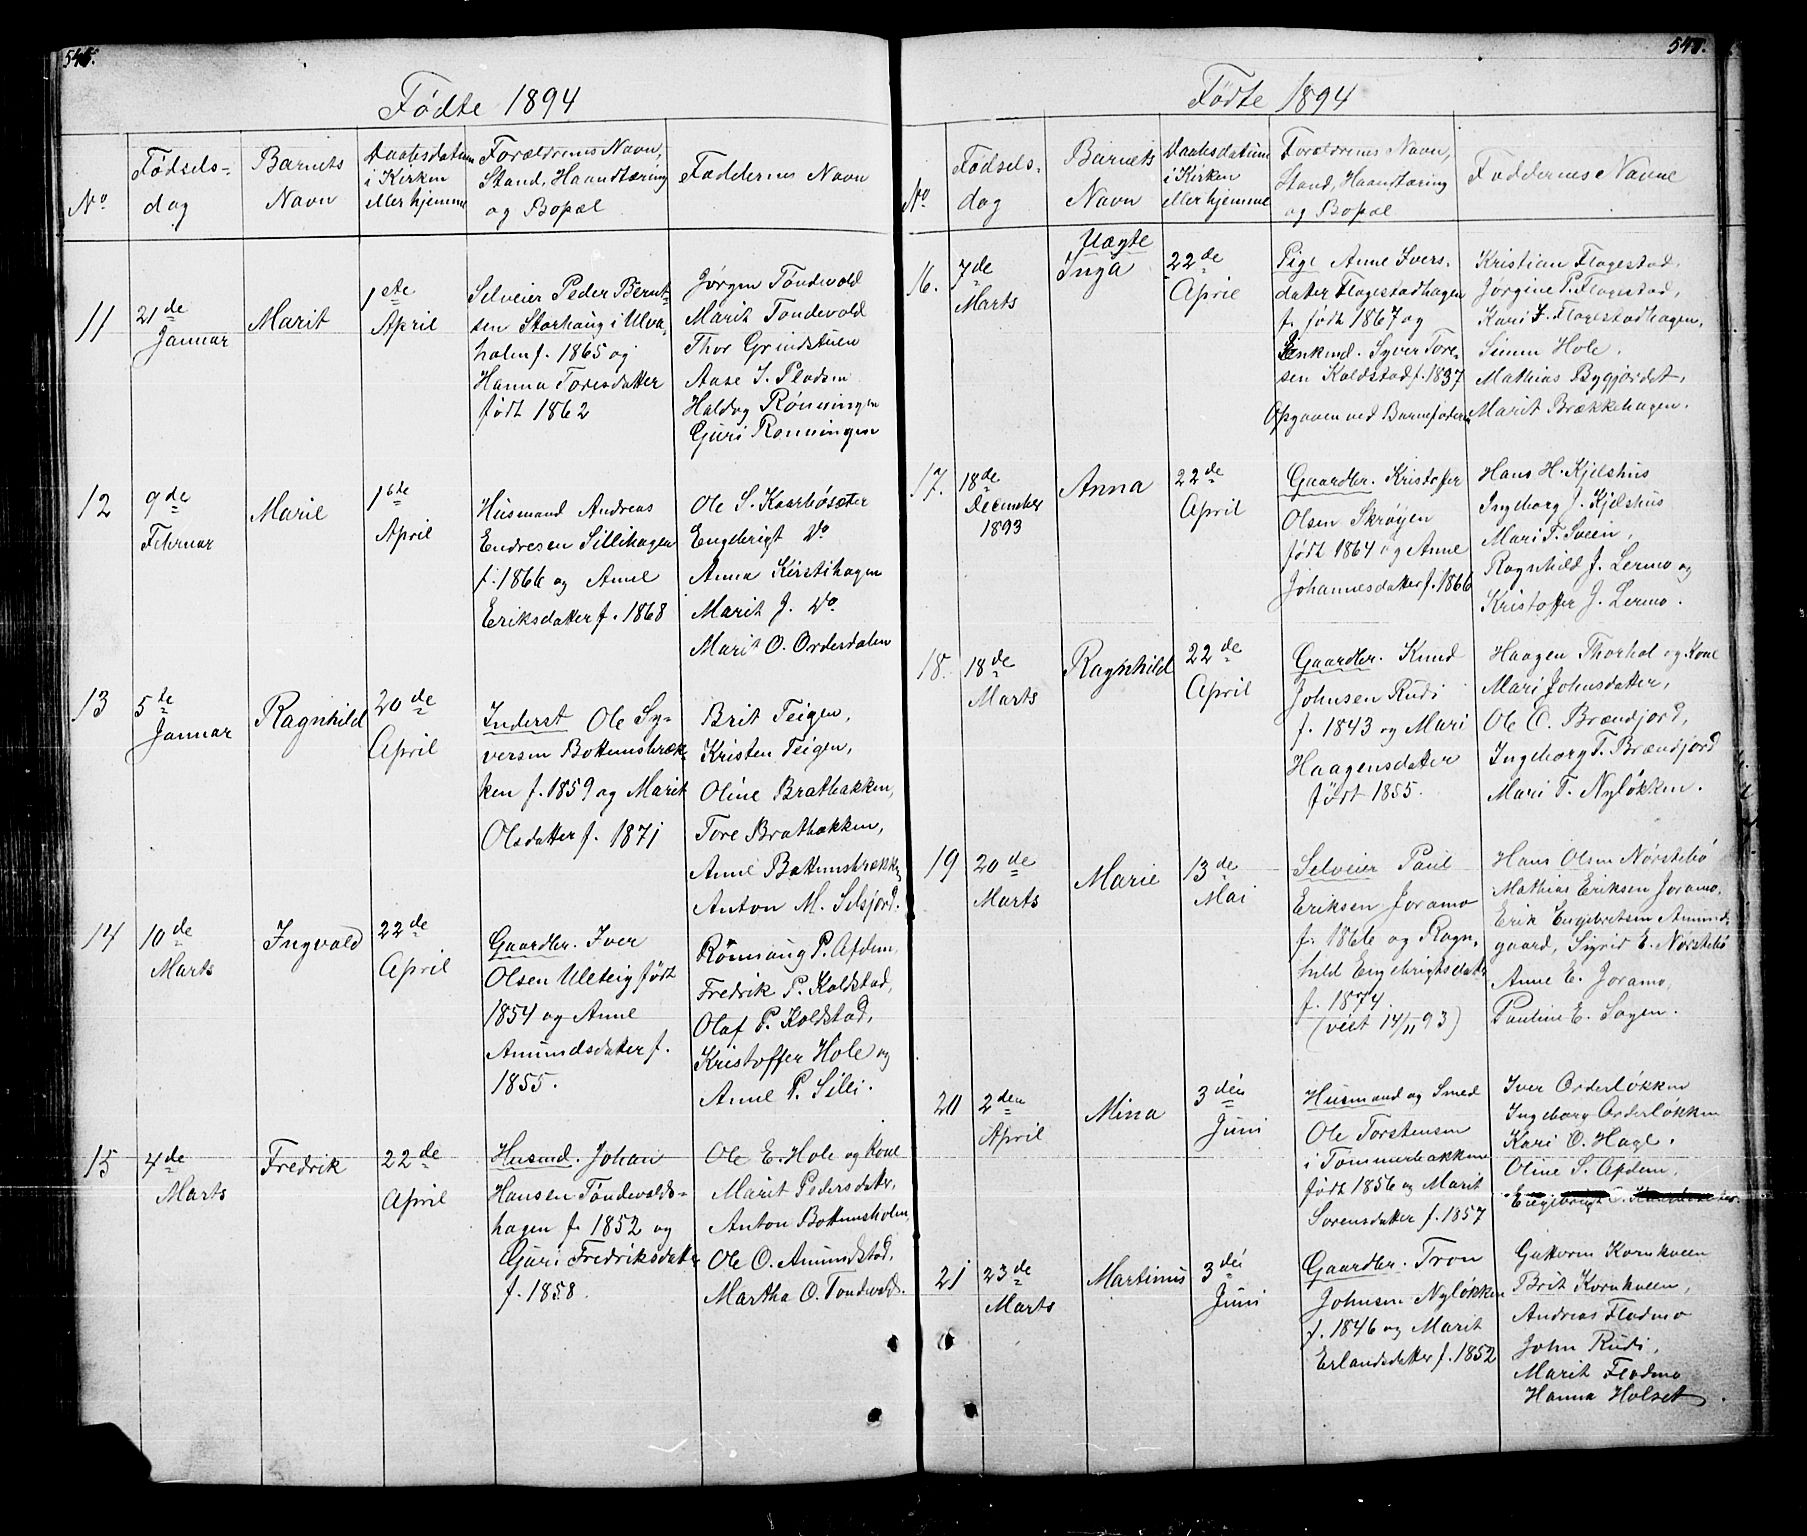 Fødte 1894
No
Fødsels-
dag
Barnets
Navn
Daabsdatum
i Kirken
eller hjemme
Forældrenes Navn,
Stand, Haandtæring
og Bopæl
Faddernes Navn
11
21de
Januar
Marit
1ste
April
Selveier Peder Bernt-
sen Storhaug i Ulva-
holen f. 1865 og
Hanna Toresdatter
født 1862
Jørgen Tøndevold
Marit Tøndevold
Thor Grindstuen
Aase I. Pladsen
Haldog Rønningen
Guri Rønningen
12
9de
Februar
Marie
1ste
April
Husmand Andreas
Endresen Sillihagen
f. 1866 og Anne
Eriksdatter f. 1868
Ole S. Kaarbøsæter
Engebrigt Do
Anna Kirstihagen
Marit J. Do
Marit O. Ordesdalen
13
5te
Januar
Ragnhild
20de
April
Inderst Ole Sy-
versen Bottumsbræk-
ken f. 1859 og Marit
Olsdatter f. 1871
Brit Teigen,
Kristen Teigen,
Oline Bratbakken,
Tore Bratbakken,
Anne Bottumsbrækken
Anton M. Selsjord.
14
10de
Marts
Ingvald
22de
April
Gaardbr. Iver
Olsen Ulateig født
1854 og Anne
Amundsdatter f.
1855.
Rønnaug P. Afdem,
Fredrik P. Koldstad,
Olaf P. Koldstad,
Kristoffer Hole og
Anne P. Silli.
15
4de
Marts
Fredrik
22de
April
Husmd. Johan
Hansen Tøndevolds-
hagen f. 1852 og
Guri Fredriksdatter
f. 1858.
Ole E. Hole og Kone
Marit Pedersdatter,
Anton Bottumsholen,
Ole O. Amundstad,
Martha O. Tondevold.
547.
Fødte 1894
No
Fødsels-
dag
Barnets
Navn
Daabsdatum
i Kirken
eller hjemme
Forældrenes Navn,
Stand, Haandtæring
og Bopæl
Faddernes Navne
16.
7de
Marts
Uægte
Inga
22de
April
Pige Anne Ivers-
datter Flagestadhagen
f. født 1867 og
Enkemd. Syver Tore-
sen Koldstad f. 1837
Opgaven ved Barnefaderen
Kristian Flagestad,
Jørgine P. Flagestad,
Kari I. Flagestadhagen,
Simen Hole,
Mathias Bygjordet,
Marit Brækkehagen.
17.
18de
December
1893
Anna
22de
April
Gaardbr. Kristofer
Olsen Skrøyen
født 1864 og Anne
Johannesdatter f. 1866
Hans H. Kjelshus
Ingeborg J. Kjelshus
Mari T. Sveen,
Ragnhild J. Lermo og
Kristoffer J. Lermo.
18.
18de
Marts
Ragnhild
22de
April
Gaardbr. Knud
Johnsen Rudi
f. 1843 og Mari
Haagensdatter
født 1855.
Haagen Thorhol og Kone
Mari Johnsdatter,
Ole O. Brændjord,
Ingeborg T. Brændjord
Mari T. Nyløkken.
19
20de
Marts
Marie
13de
Mai
Selveier Paul
Eriksen Joramo
f. 1866 og Ragn-
hild Engebrigtsdatter
f. 1874.
(viet 14/11 93)
Hans Olsen Nørstebø
Mathias Eriksen Joramo,
Erik Engebretsen Amund-
gaard, Sigrid E. Nørstebø
Anne E. Joramo,
Pauline E. Sagen.
20
2den
April
Mina
3die
Juni
Husmand og Smed
Ole Torstensen
i Tommerbakken
født 1856 og Marit
Sorensdatter f. 1857
Iver Orderløkken
Ingeborg Orderløkken
Kari O. Hage.
Oline S. Afdem,
21
23de
Marts
Martinus
3die
Juni
Gaardbr. Tron
Johnsen Nyløkken
f. 1846 og Marit
Erlandsdatter f. 1852
Guttorm Kornkveen
Brit Kornkveen,
Andreas Fladmo
John Rudi,
Marit Fladmo
Hanna Holset.